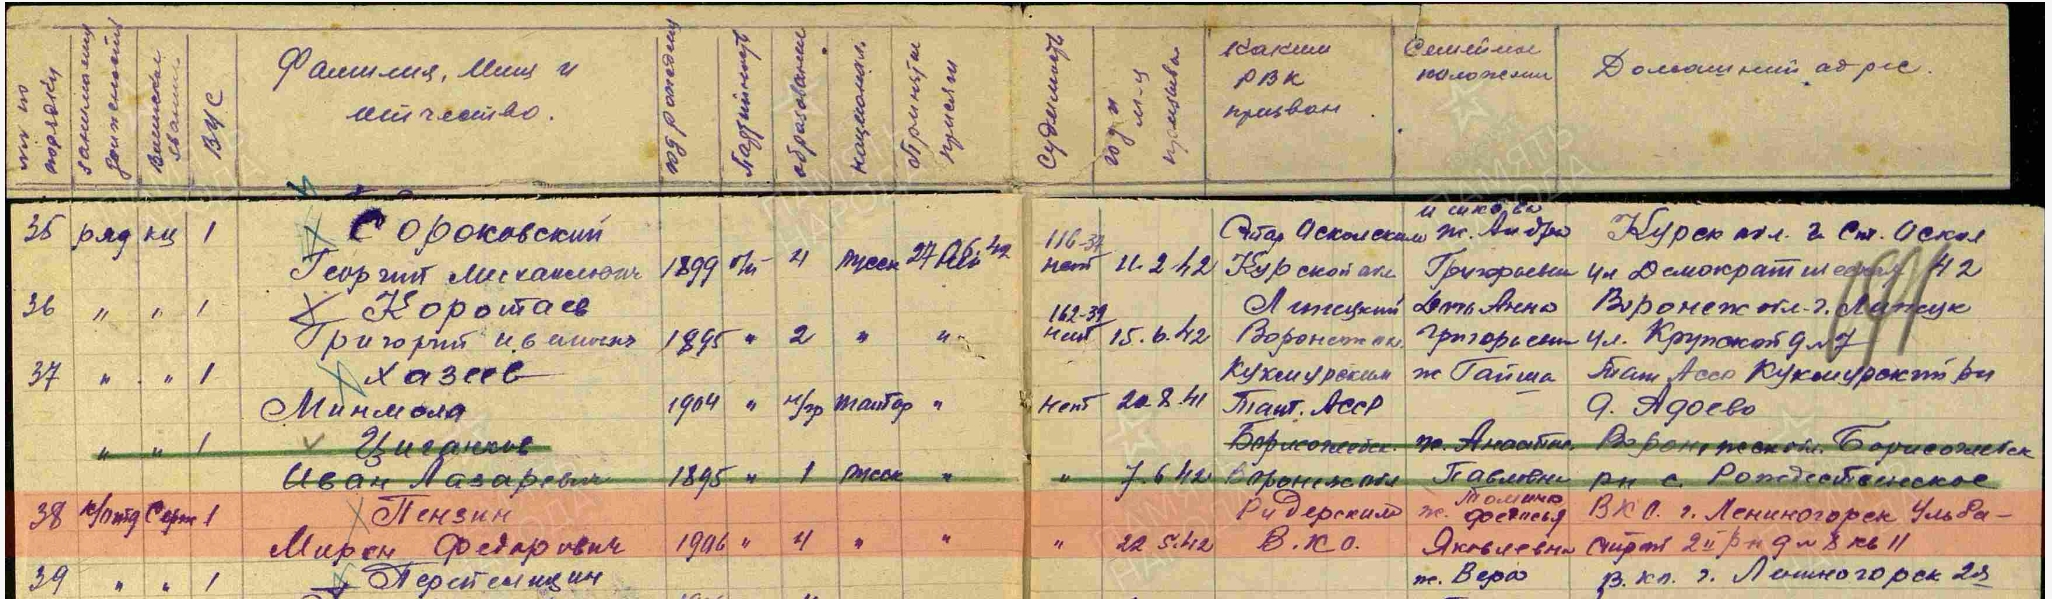 №№ по порядку занимаемая должность Воинское звание ВУС Фамилия, Имя и отчество. год рождения Партийность образование национальн. Принятие присяги Судимость год и м-ц призыва Каким РВК призван Семейное положение Домашний адрес.
35 ряд кц 1 Сороковский Стар Оскольским ж. Курск обл. г. Ст. Оскол
Георгий Михайлович 1899 б/п 4 русск 27 нет 11.2.42 Курской обл Григорьевн ул Демократическая 42
116-37
36 " " 1 Коротаев Липецкий Анна Воронеж обл. г. Липецк
Григорий Иванович 1895 " 2 " " нет 15.6.42 Воронеж обл. Григорьевн ул. Крупской д № 7
162-39
191
37 " " 1 Хазеев Кукмурским ж Гайша Тат Ассо Кукмурский рн
Минмола 1904 " н/гр татар " нет 20.8.41 Тат. АССР д. Ядоево
" " 1 Циганков Борисоглебск. ж. Анастас. Воронежск обл. Борисоглебск
Иван Лазаревич 1895 " 1 русск " " 7.6.42 Воронеж обл Павловна рн с. Рождественское
38 к/отд Серж 1 Пензин Ридерским ж. ВКО. г. Лениногорск Ульба-
Мирон Федорович 1906 " 4 " " " 22.5.42 В.К.О. Яковлевна строй 2й рн д № 8 кв 11
39 " " 1 Перепелицин ж. Вера В.КО. г. Лениногорск 2й
ПАМЯТЬ НАРОДА